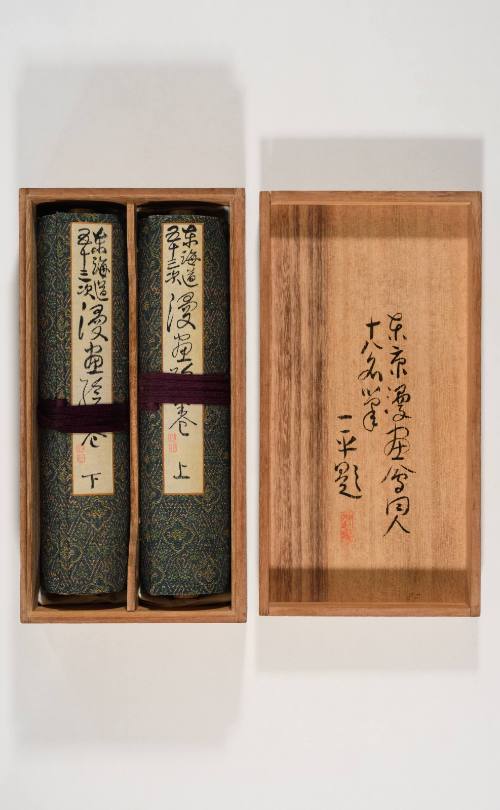 東海道
五十三次
漫畫絵巻 上
東海道
五十三次
漫畫絵巻 下
東京漫畫會同人
十八名筆
一平題